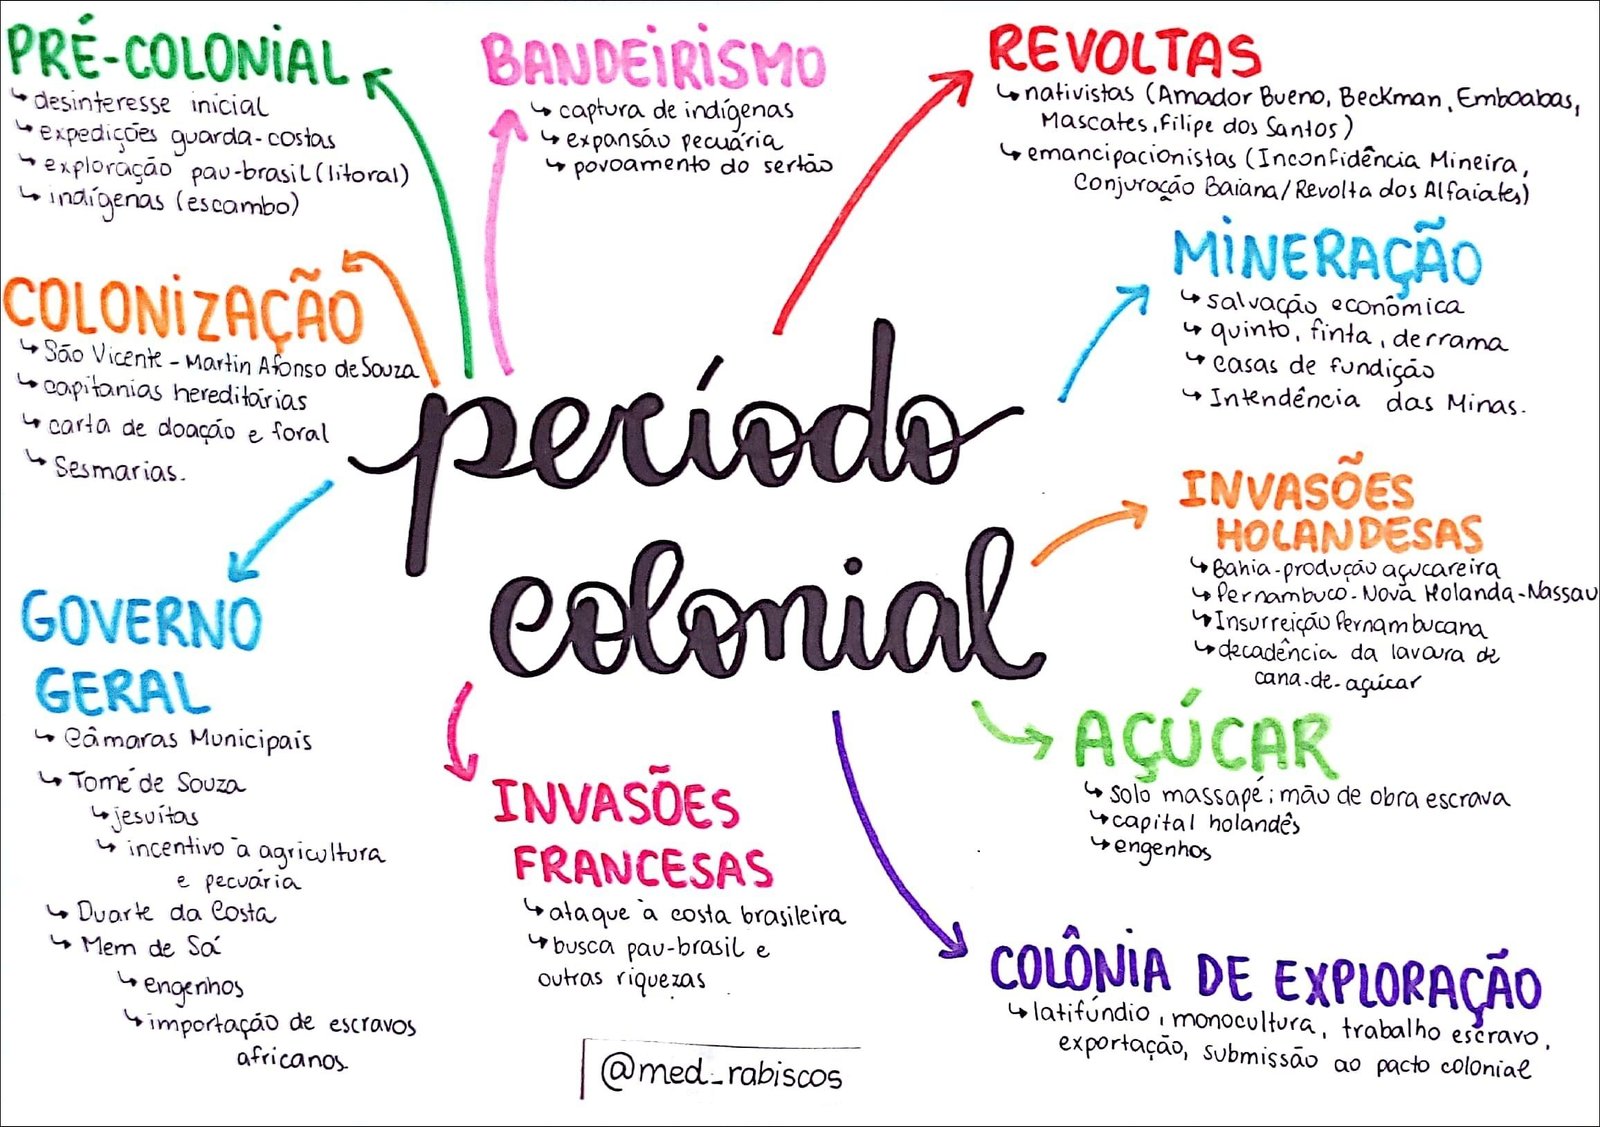 PRÉ-COLONIAL
desinteresse inicial
expedições guarda-costas
exploração pau-brasil (litoral)
indígenas (escambo)
BANDEIRISMO
captura de indígenas
expansão pecuária
povoamento do sertão
REVOLTAS
nativistas (Amador Bueno, Beckman, Emboabas,
Mascates, Filipe dos Santos)
emancipacionistas (Inconfidência Mineira,
Conjuração Baiana/Revolta dos Alfaiates)
COLONIZAÇÃO
São Vicente - Martin Afonso de Souza
capitanias hereditárias
carta de doação e foral
Sesmarias.
MINERAÇÃO
salvação econômica
quinto, finta, derrama
casas de fundição
Intendência das Minas.
período
colonial
INVASÕES
HOLANDESAS
Bahia - produção açucareira
Pernambuco - Nova Holanda - Nassau
Insurreição Pernambucana
decadência da lavoura de
cana-de-açúcar
GOVERNO
GERAL
Câmaras Municipais
Tomé de Souza
jesuítas
incentivo à agricultura
e pecuária
Duarte da Costa
Mem de Sá
engenhos
importação de escravos
africanos
INVASÕES
FRANCESAS
ataque à costa brasileira
busca pau-brasil e
outras riquezas
AÇÚCAR
solo massapé; mão de obra escrava
capital holandês
engenhos
COLÔNIA DE EXPLORAÇÃO
latifúndio, monocultura, trabalho escravo,
exportação, submissão ao pacto colonial
@med_rabiscos